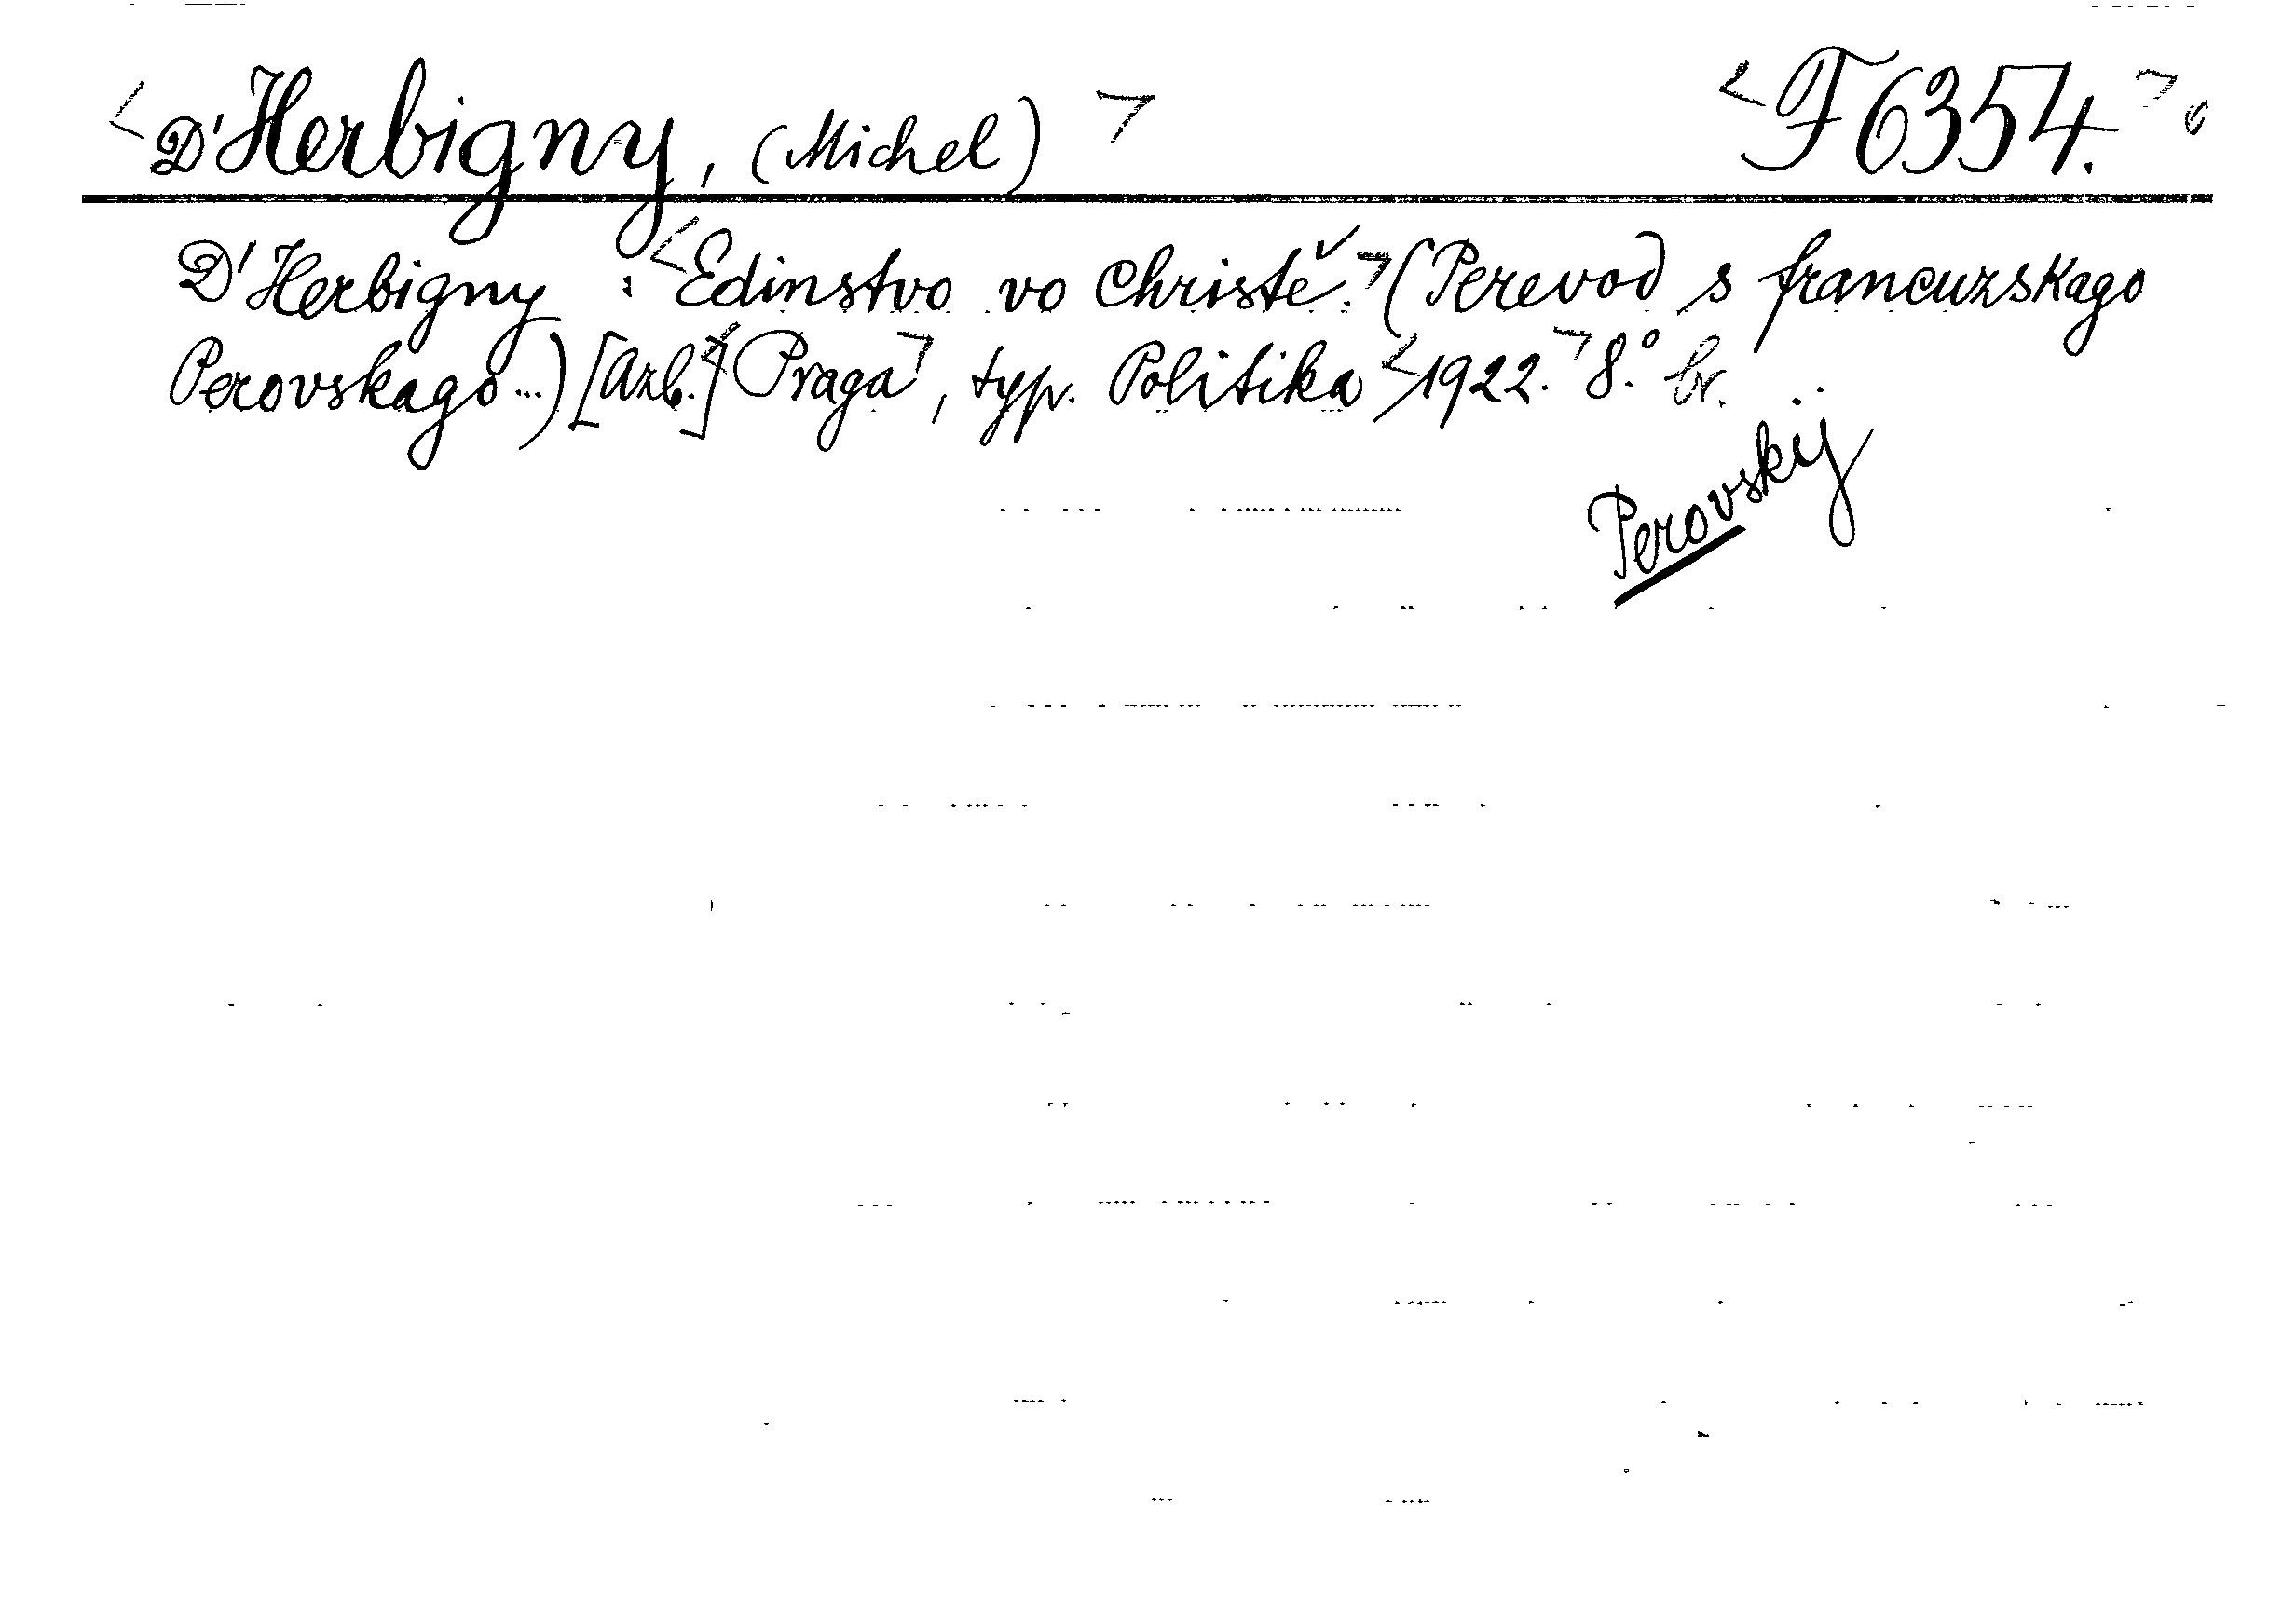 <D'Herbigny, (Michel)> <F 6354.>
D'Herbigny : <Edinstvo vo Christě.> (Perevod s francuzskago
Perovskago...) [Azb.] <Praga>, typ. Politika <1922.> 8.° br.
Perovskij